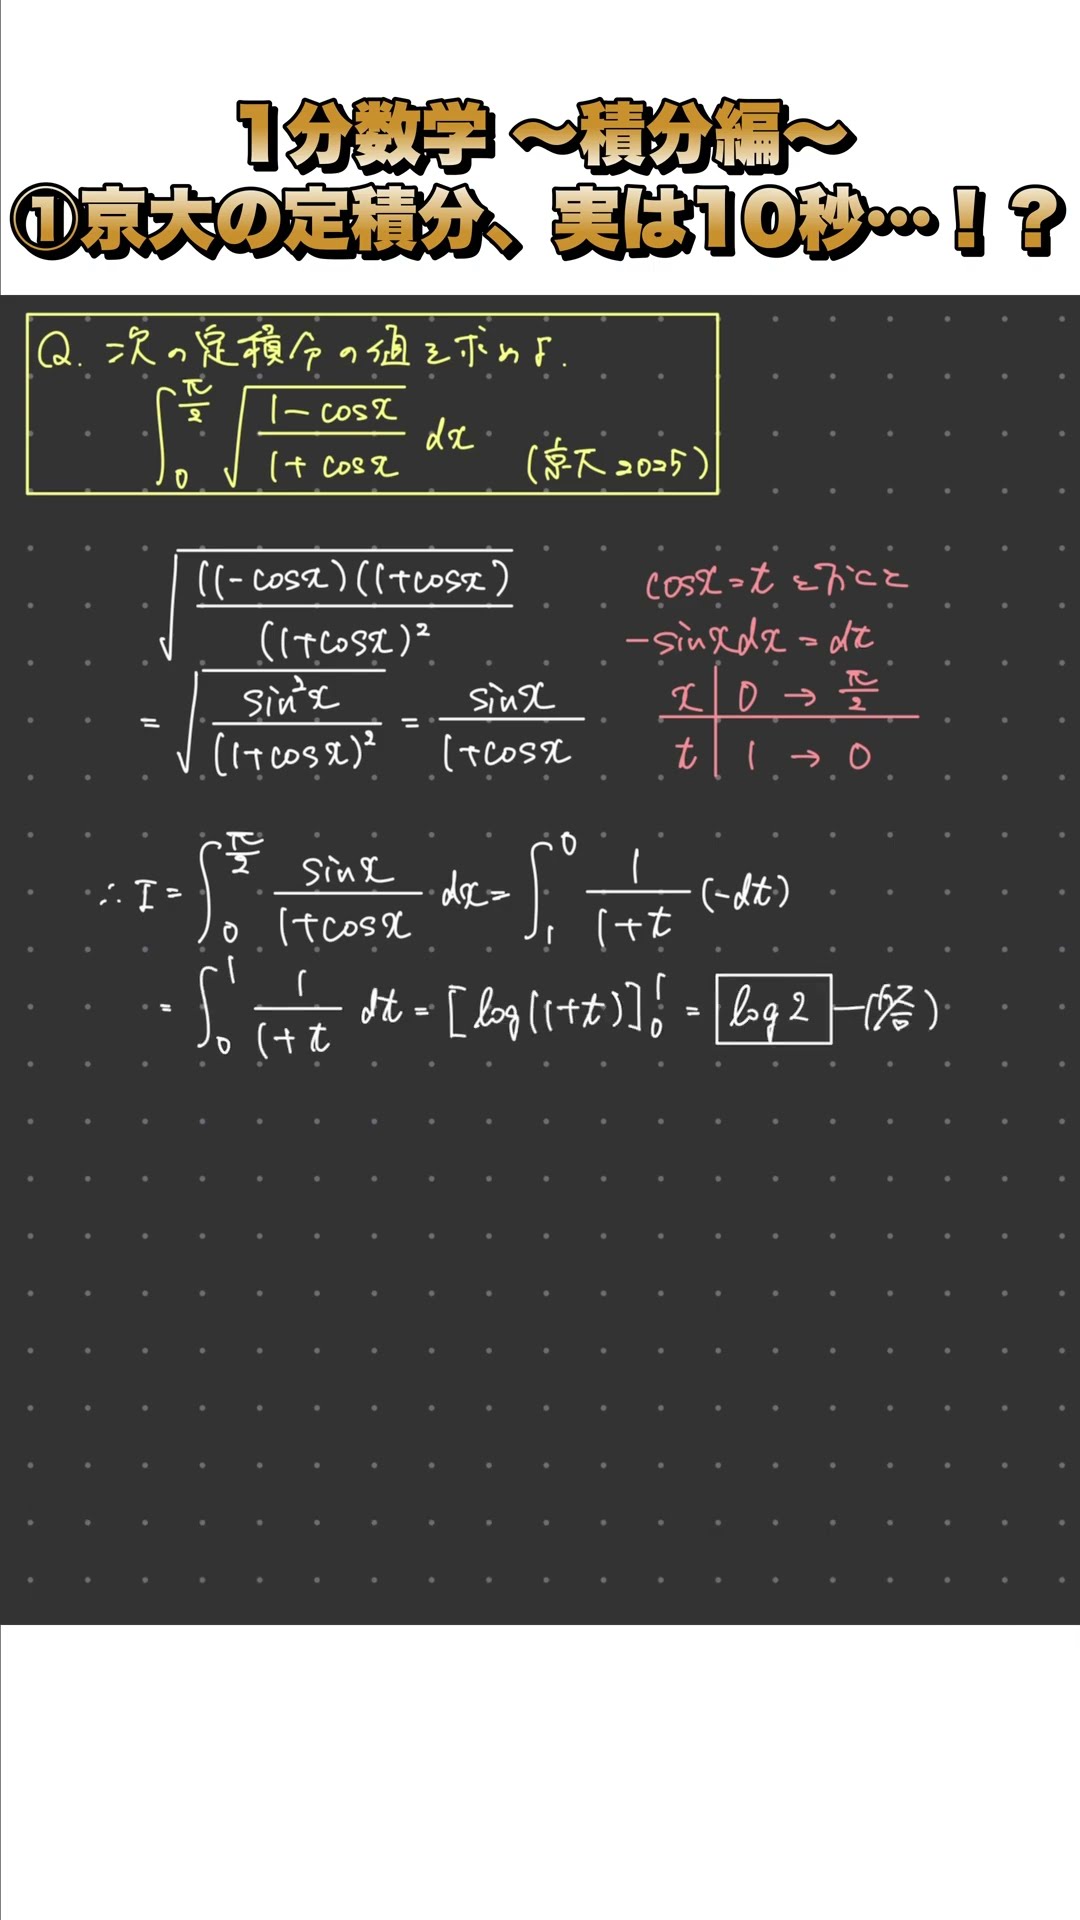 1分数学 〜積分編〜
①京大の定積分、実は10秒…！？
Q. 次の定積分の値を求めよ.
∫_0^{π/2} √((1-cosx)/(1+cosx)) dx (京大2025)
√(((1-cosx)(1+cosx))/((1+cosx)^2))
= √(sin^2x/((1+cosx)^2)) = sinx/(1+cosx)
cosx=tとおくと
-sinxdx=dt
x | 0 → π/2
t | 1 → 0
∴ I = ∫_0^{π/2} sinx/(1+cosx) dx = ∫_1^0 1/(1+t) (-dt)
= ∫_0^1 1/(1+t) dt = [log(1+t)]_0^1 = log2 —(答)